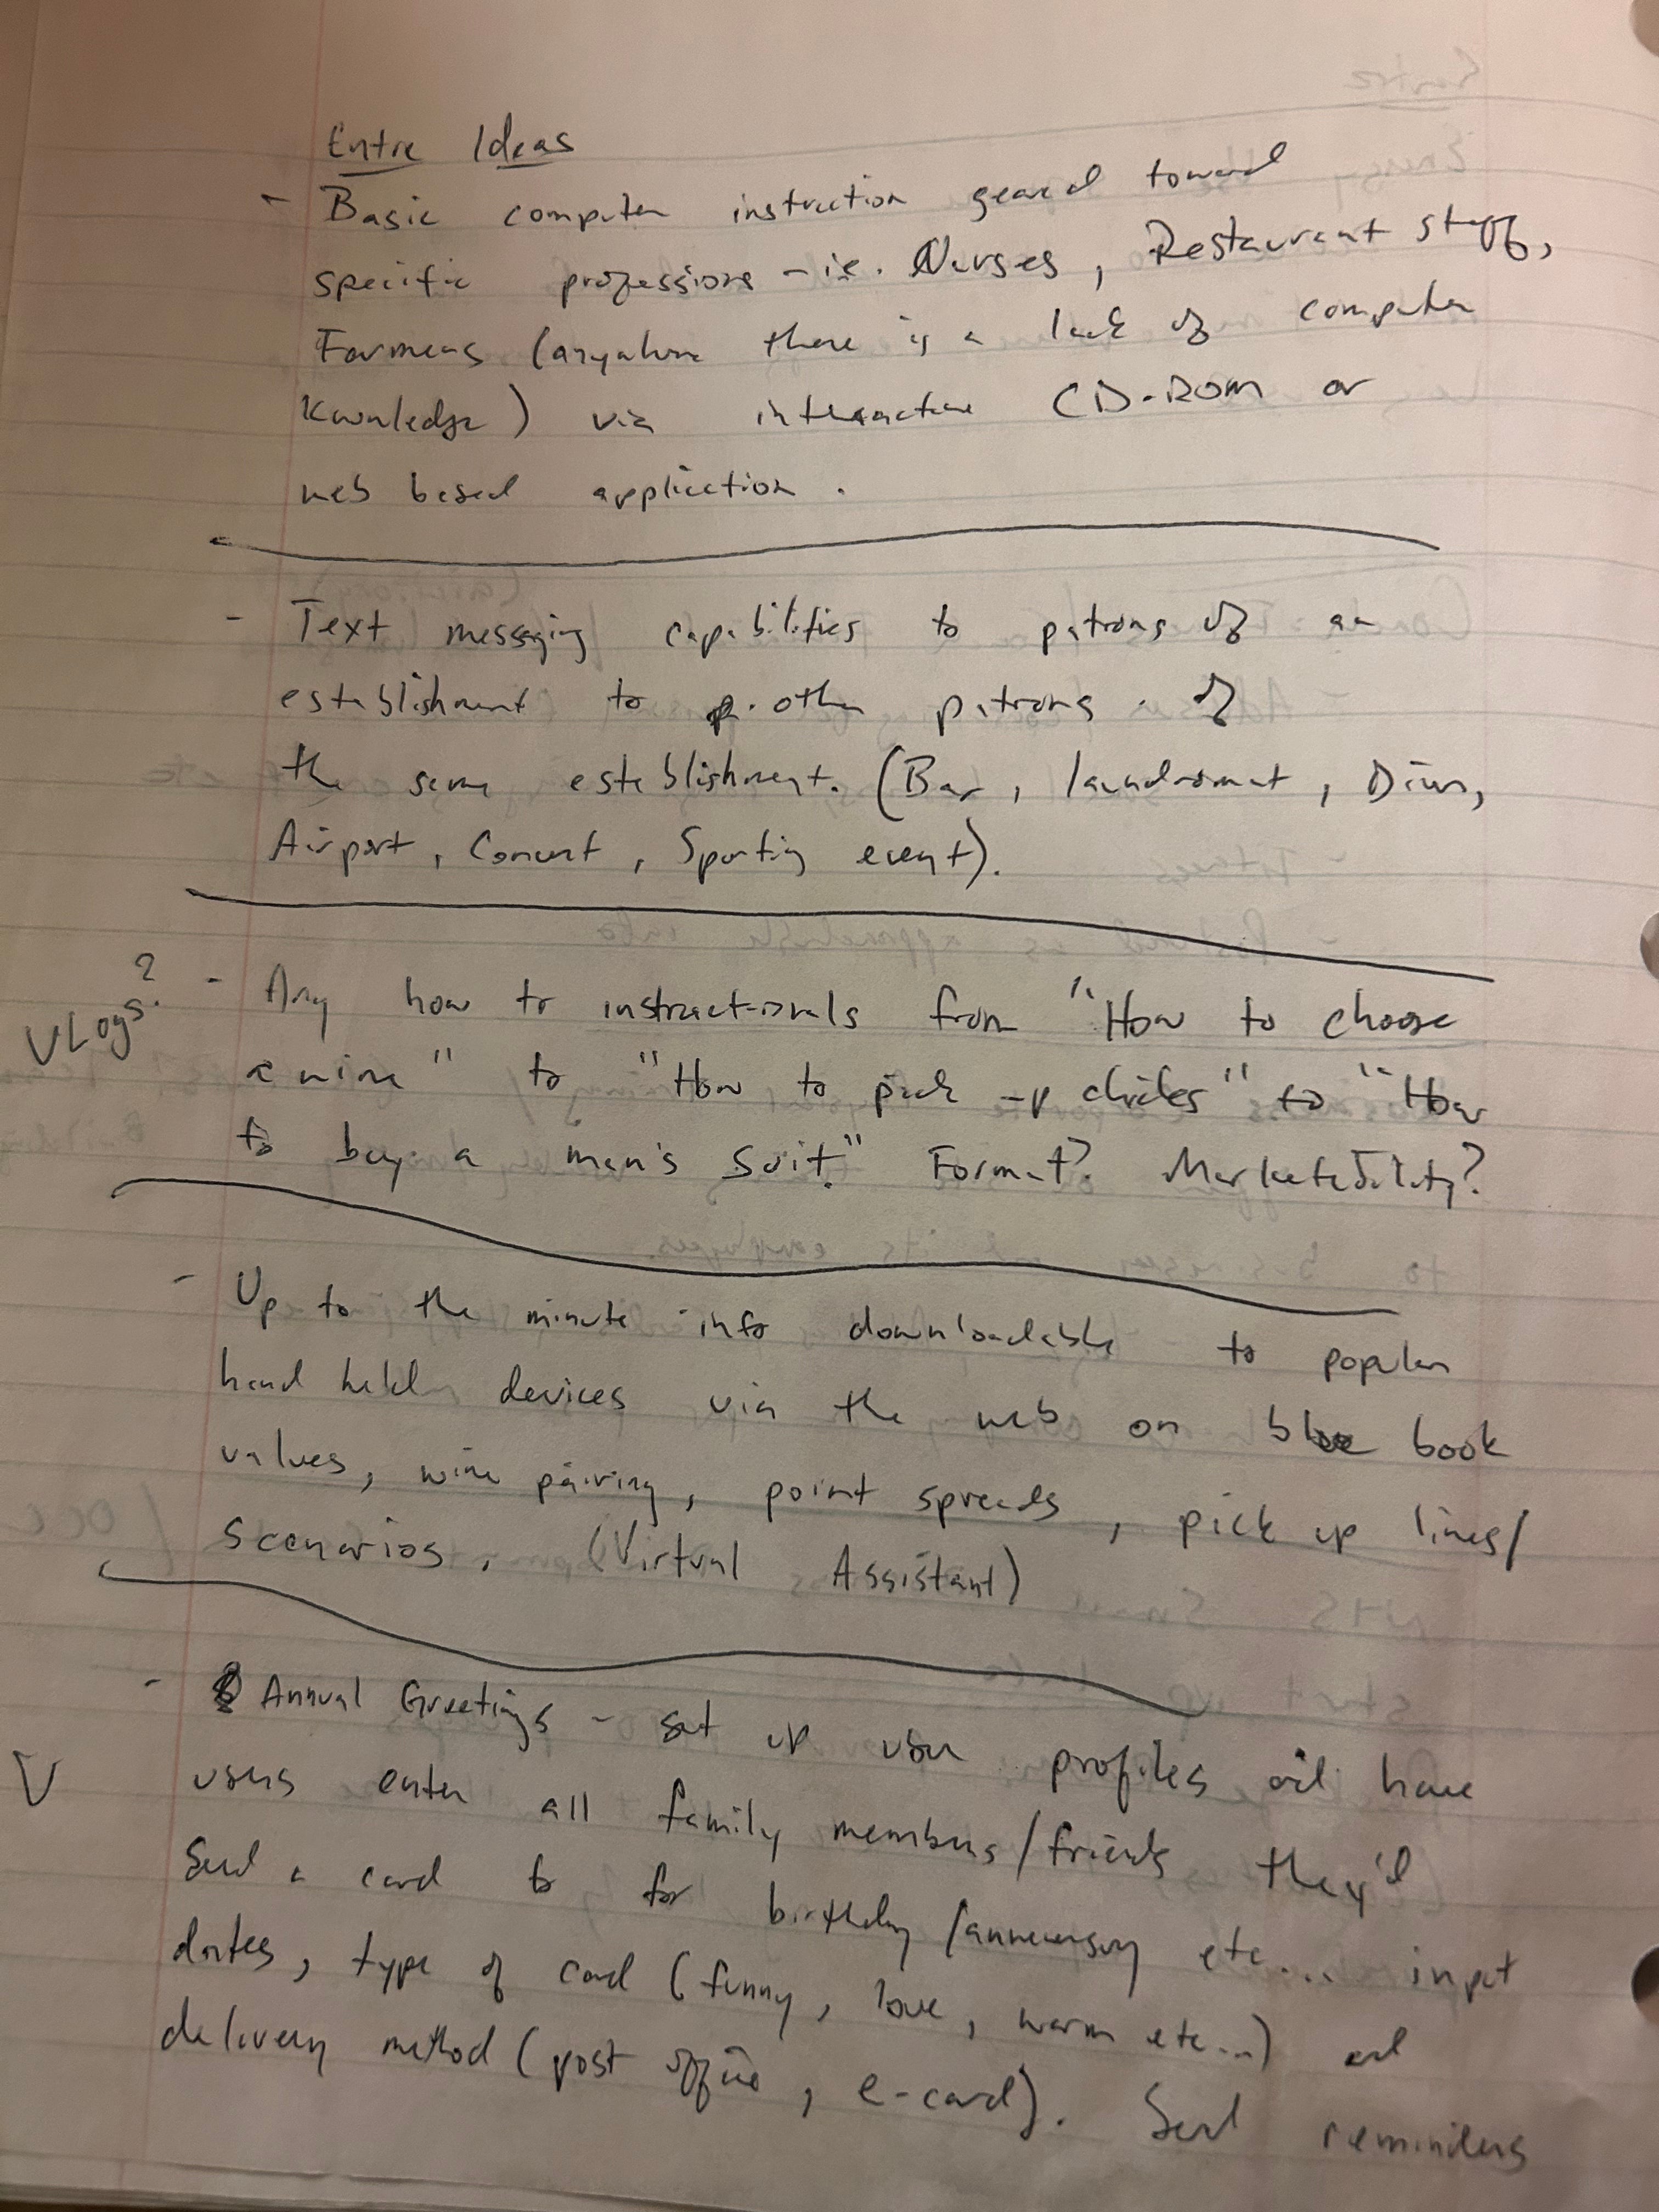 Entre Ideas
- Basic computer instruction geared toward
specific professions - i.e. Nurses, Restaurant staff,
Farmers (anywhere there is a lack of computer
knowledge) via interactive CD-ROM or
web based application.
- Text messaging capabilities to patrons of an
establishment to other patrons of
the same establishment. (Bar, laundromat, Diner,
Airport, Concert, Sporting event).
VLogs?
- Any how to instructionals from "How to choose
a wine" to "How to pick up chicks" to "How
to buy a men's suit." Format? Marketability?
- Up to the minute info downloadable to popular
hand held devices via the web on blue book
values, wine pairing, point spreads, pick up lines/
scenarios, (Virtual Assistant)
- Annual Greetings - set up user profiles and have
V
users enter all family members/friends they'd
send a card to for birthday/anniversary etc... input
dates, type of card (funny, love, warm etc...) and
delivery method (post office, e-card). Send reminders